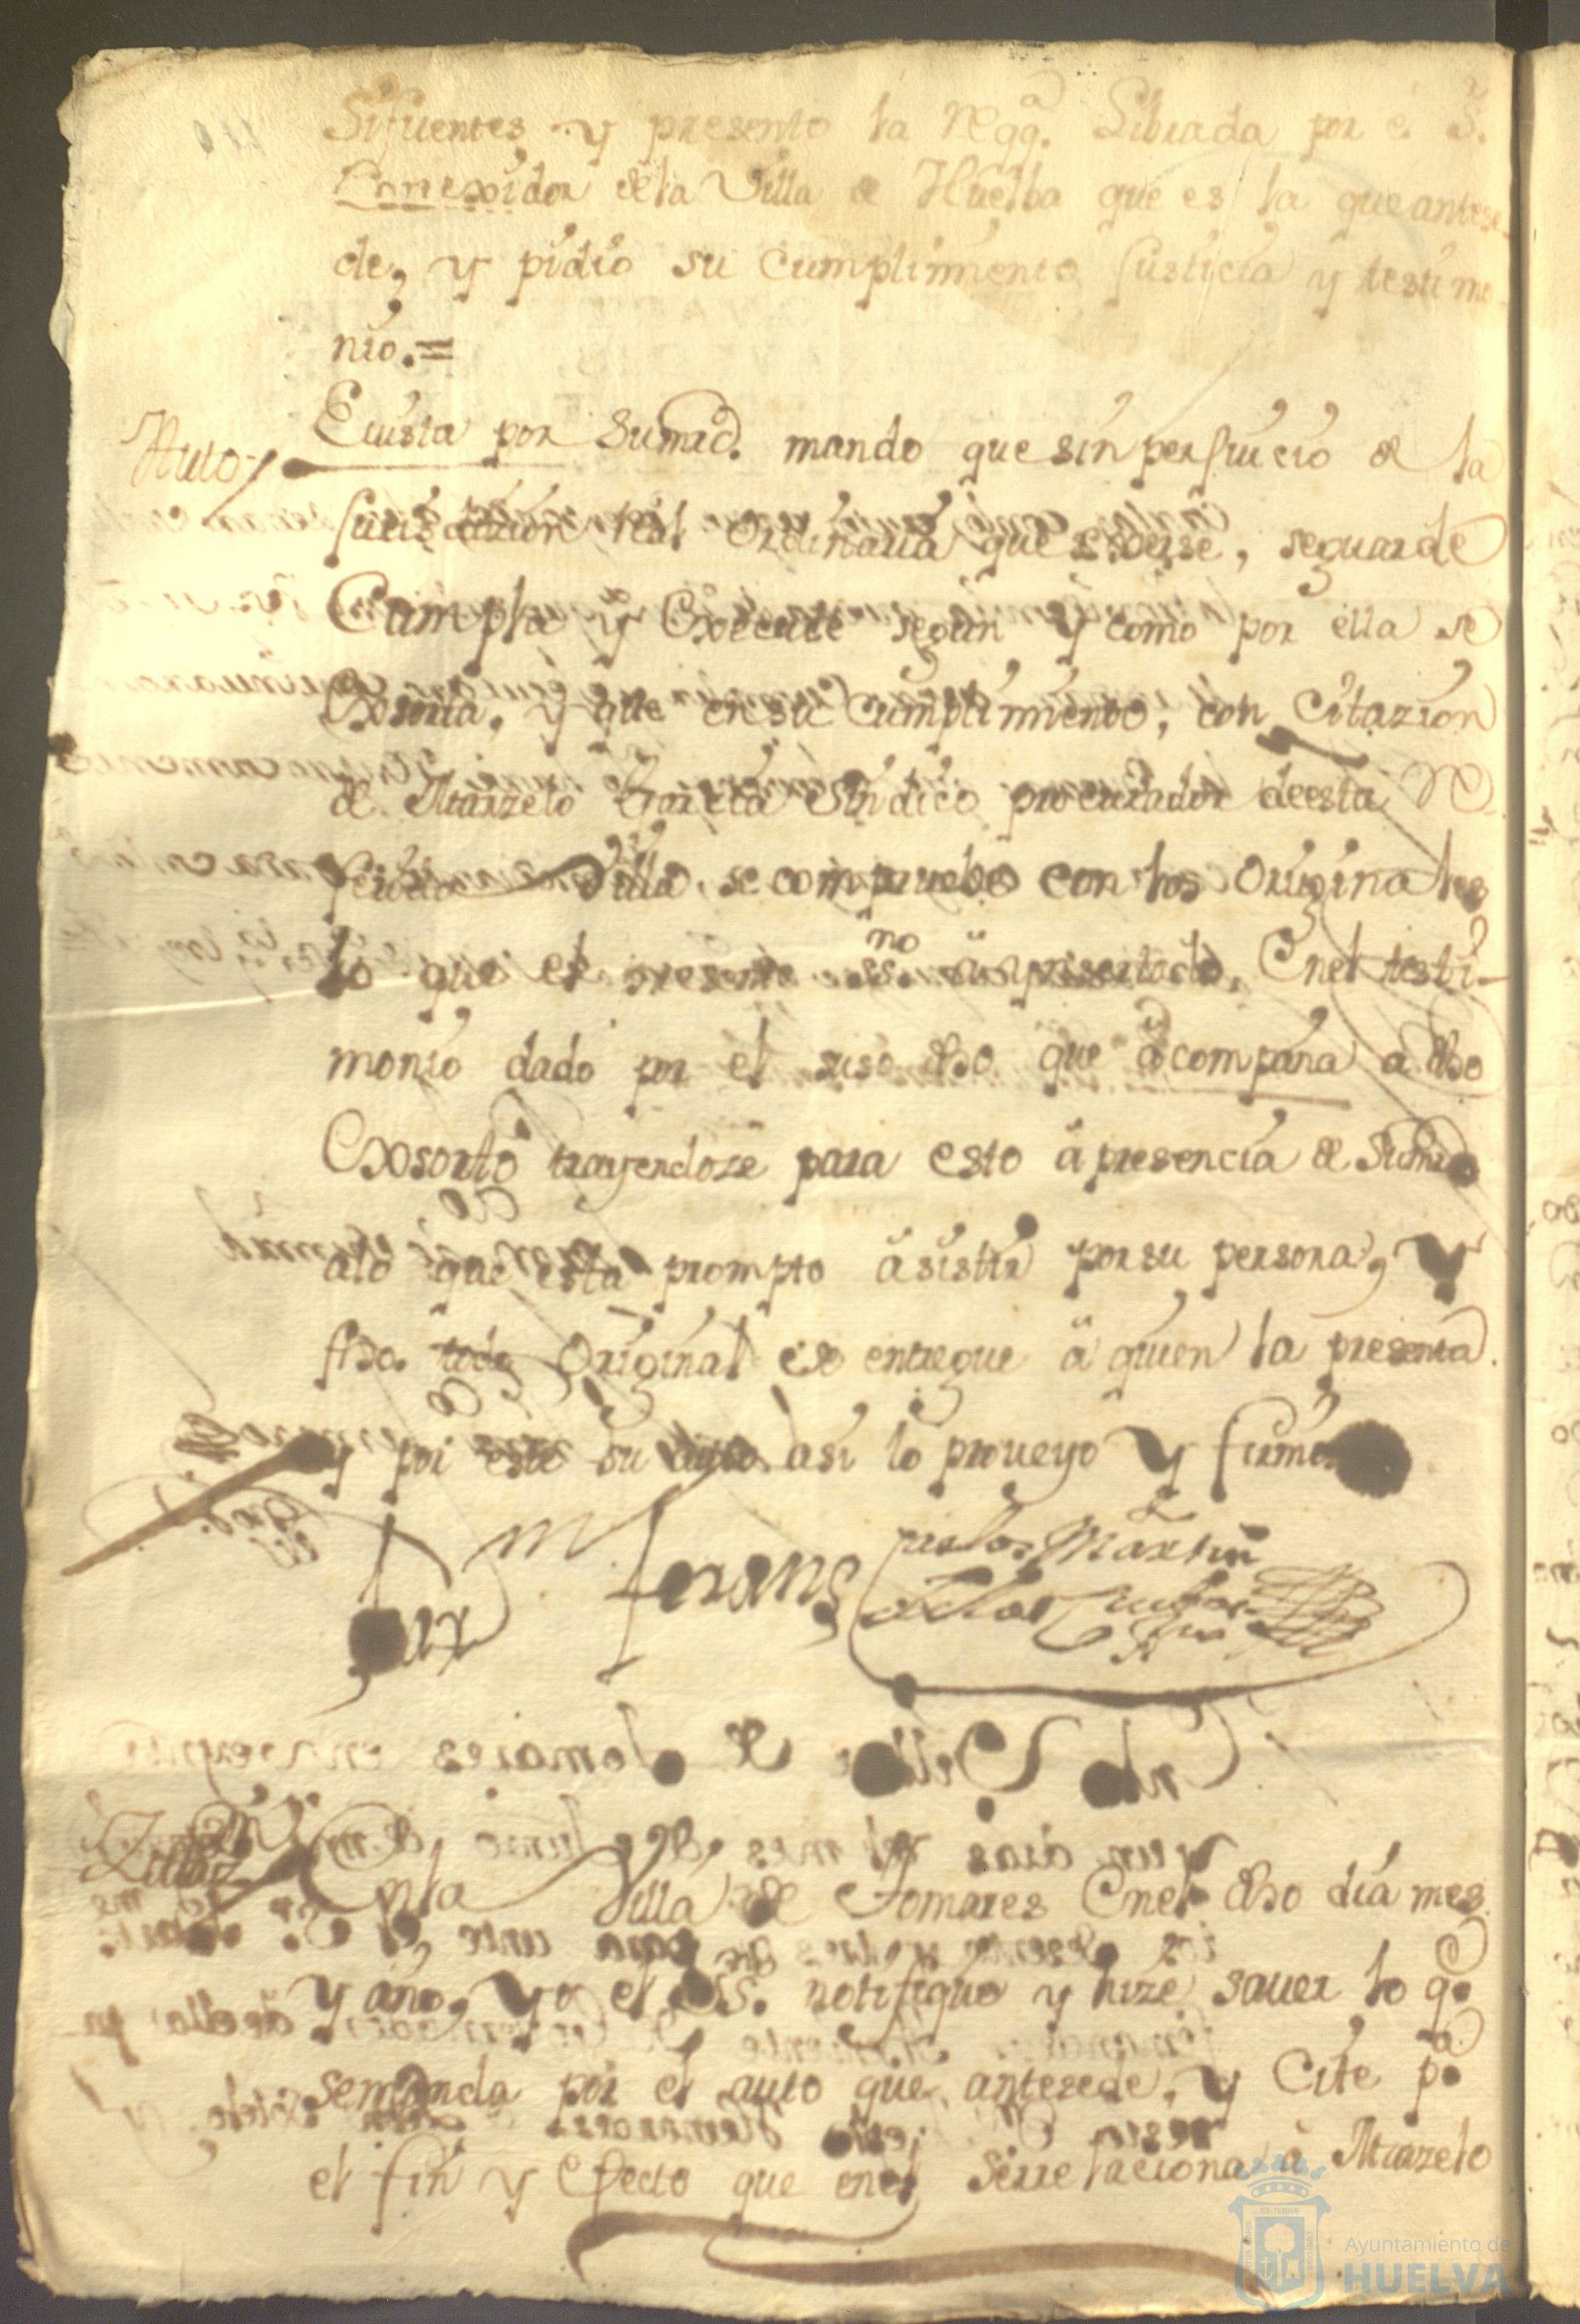 Sifuentes y presento la Reqq.ª Librada por el S.ʳ
Correxidor de la Villa de Huelba que es la que antese
de, y pidio su cumplimiento Justicia y testimo-
nio.=
Auto,
E vista por Sumrd. mando que sin perjuicio de la
Jurisdizion Real Ordinaria que exerse, se guarde
Cumpla y Execute segun y como por ella se
Exsorta, y que en su cumplimiento, con Citazion
de Marzelo Garcia Sindico procurador de esta
Villa, se compruebe con los Originales
lo que el presente ss.no a insertado, En el testi-
monio dado por el suso dho que acompaña a dho
Exsorto trayendose para esto a presencia de Sumrd
alo que esta prompto a sistir por su persona, y
fho. todo Original se entregue a quien la presenta.
y por este su auto asi lo proveyo y firmo.
Martin
En la Villa de Tomares En el dho dia mes
y año, yo el SS. notifique y hize saver lo q.e
se manda por el auto que antesede, y Cite p.a
el fin y Efecto que en el se rrelaciona a Marzelo
Ayuntamiento de
HUELVA